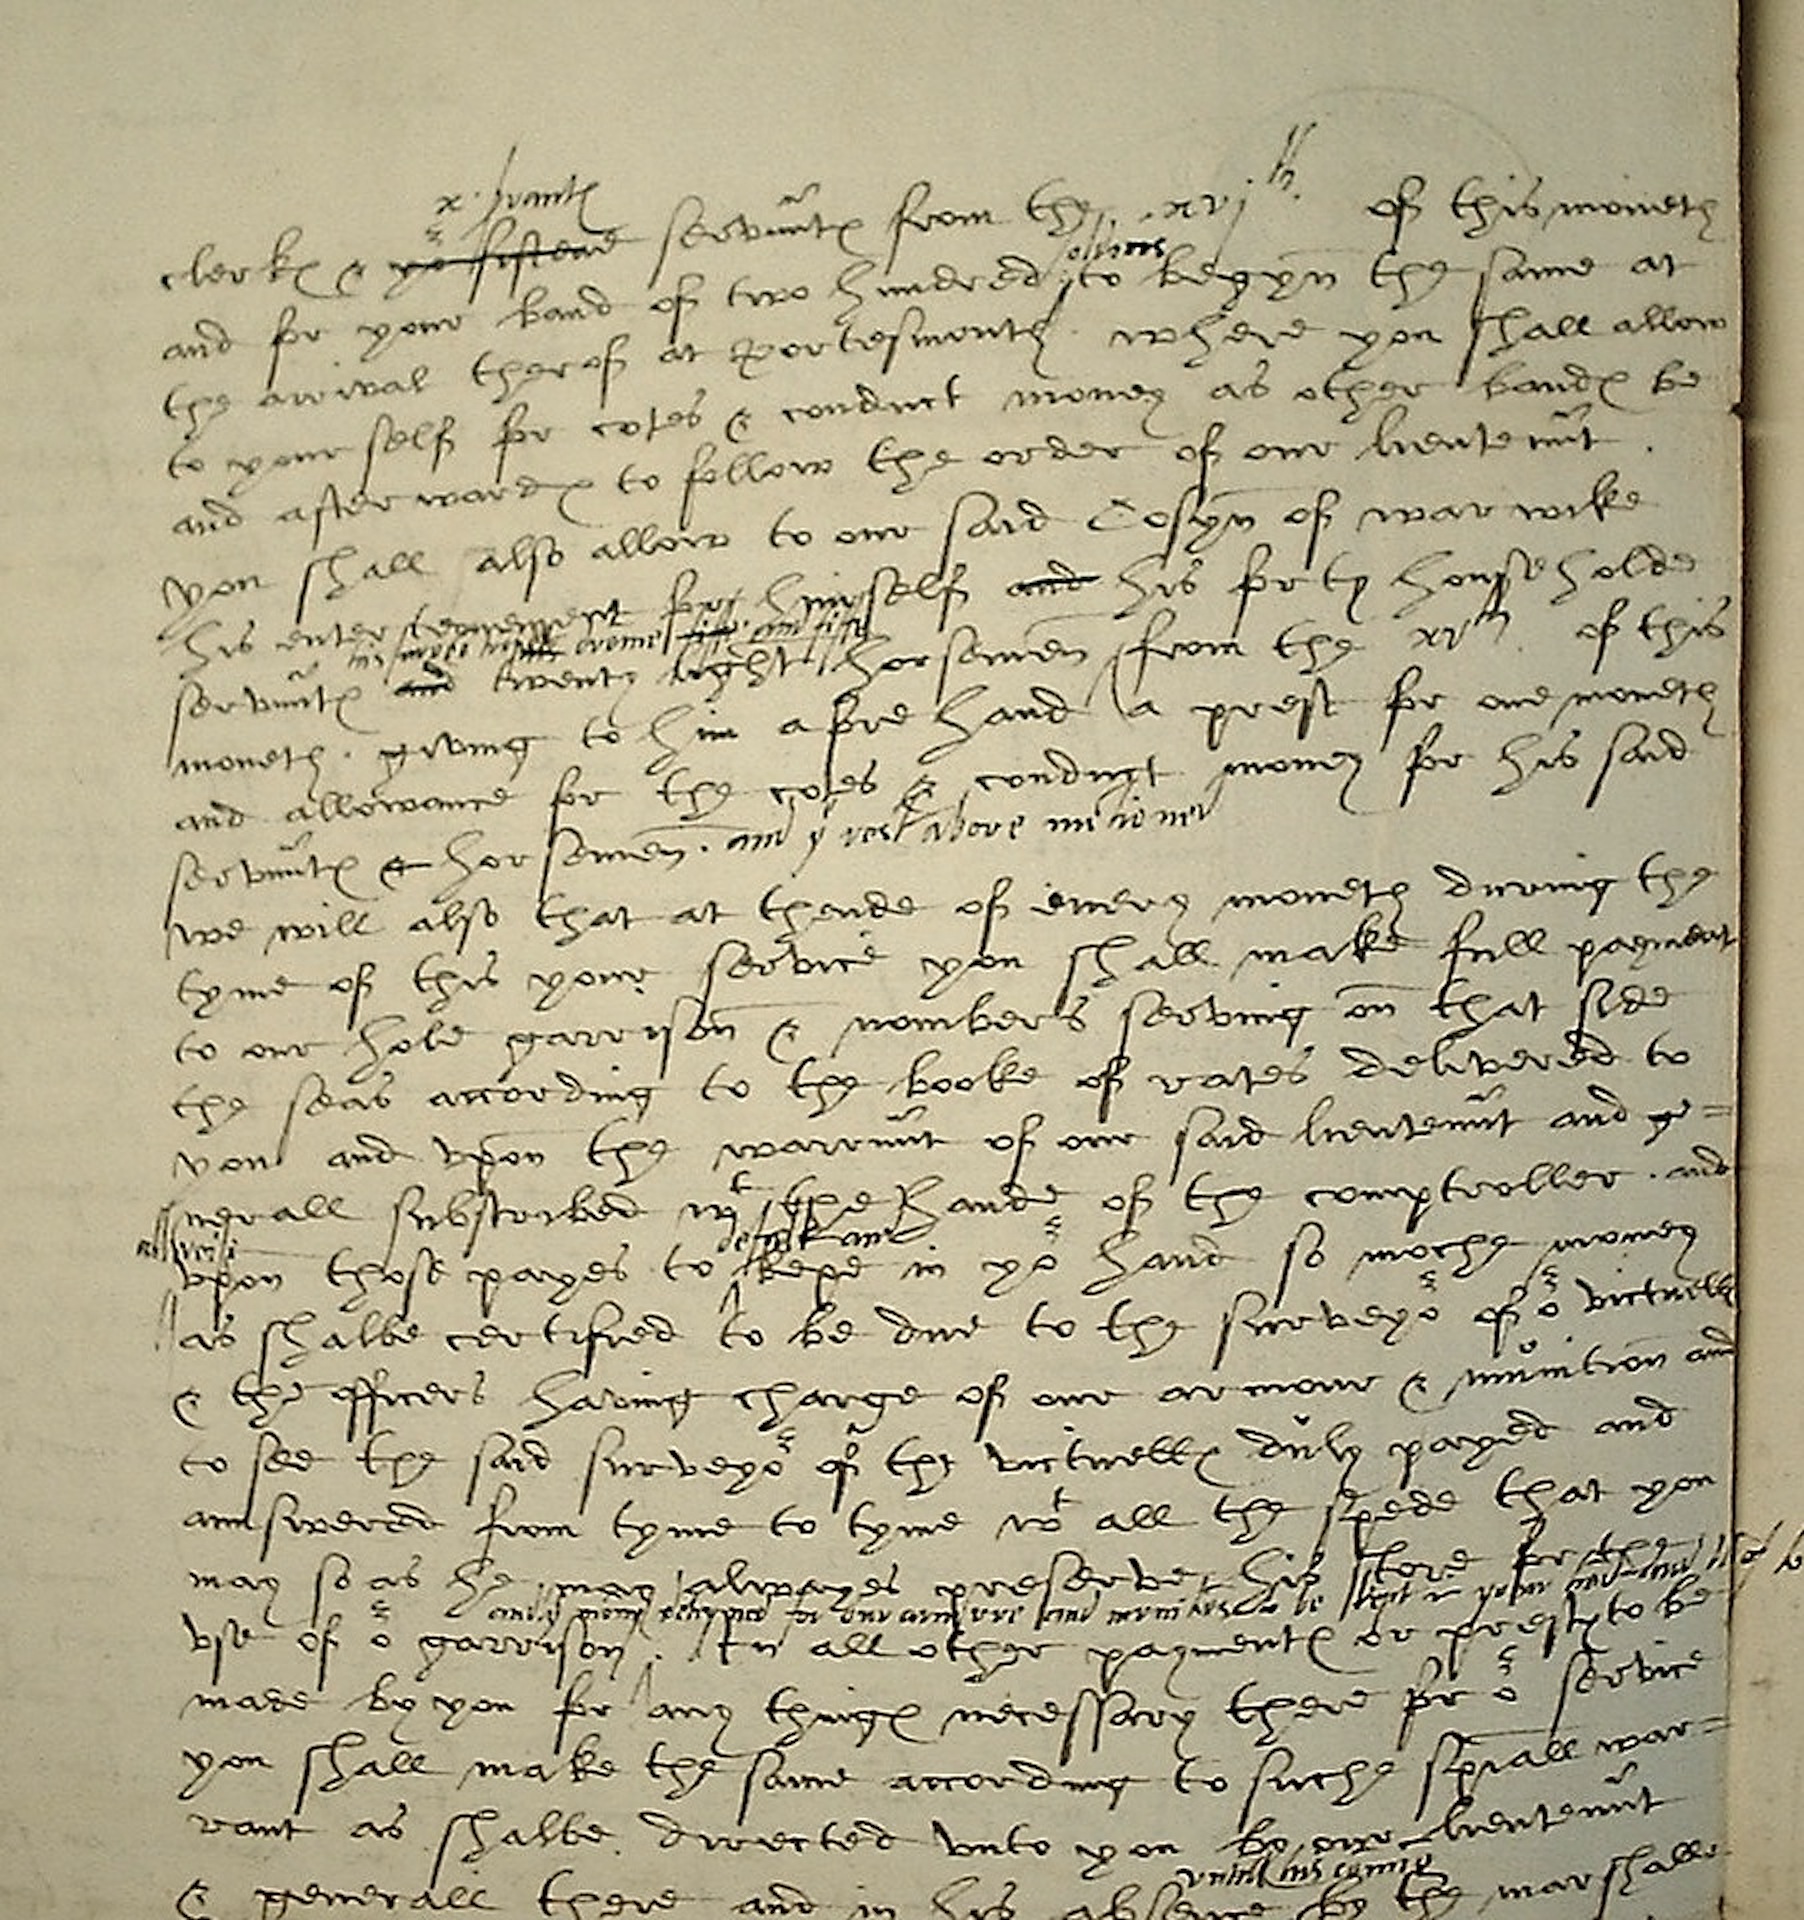 x. servantes
clerkes & yor fiftene servuntes from the xvjth. of this moneth
others
and for your band of two hundred to begyn the same at
the arrival therof at Portesmouth. where you shall allow
to your self for cotes & conduct money as other bandes be
and afterwardes to follow the order of our lieutenunt.
you shall also allow to our said Cosyn of warwike
his entertenement for himself and his forty householde
servuntes and twenty light horsemen from the xvth. of this
moneth. giving to him afore hand a prest for one moneth
and allowance for the cotes & conduct money for his said
servuntes & horsemen. and ye rest above mencioned
we will also that at thende of every moneth during the
tyme of this your service you shall make full payment
to our hole garrison & nombers serving on that side
the seas according to the booke of rates delivered to
you and upon the warrunt of our said lieutenunt and ge=
nerall subscribed wt the hande of the comptroller. and
defalk and
upon those payes to kepe in yor hand so moche money
as shalbe certified to be due to the surveyor of or victuelles
& the officers having charge of our armour & munition and
to see the said surveyor of the victuelles duly payed and
aunswered from tyme to tyme wt all the spede that you
may so as he may alwayes preserve his store for the
use of or garrison. In all other paymentes or prestes to be
made by you for any thinges necessary there for or service
you shall make the same according to suche speciall war=
rant as shalbe directed unto you by our lieutenunt
untill his coming
& generall there and in his absence by the marshalle